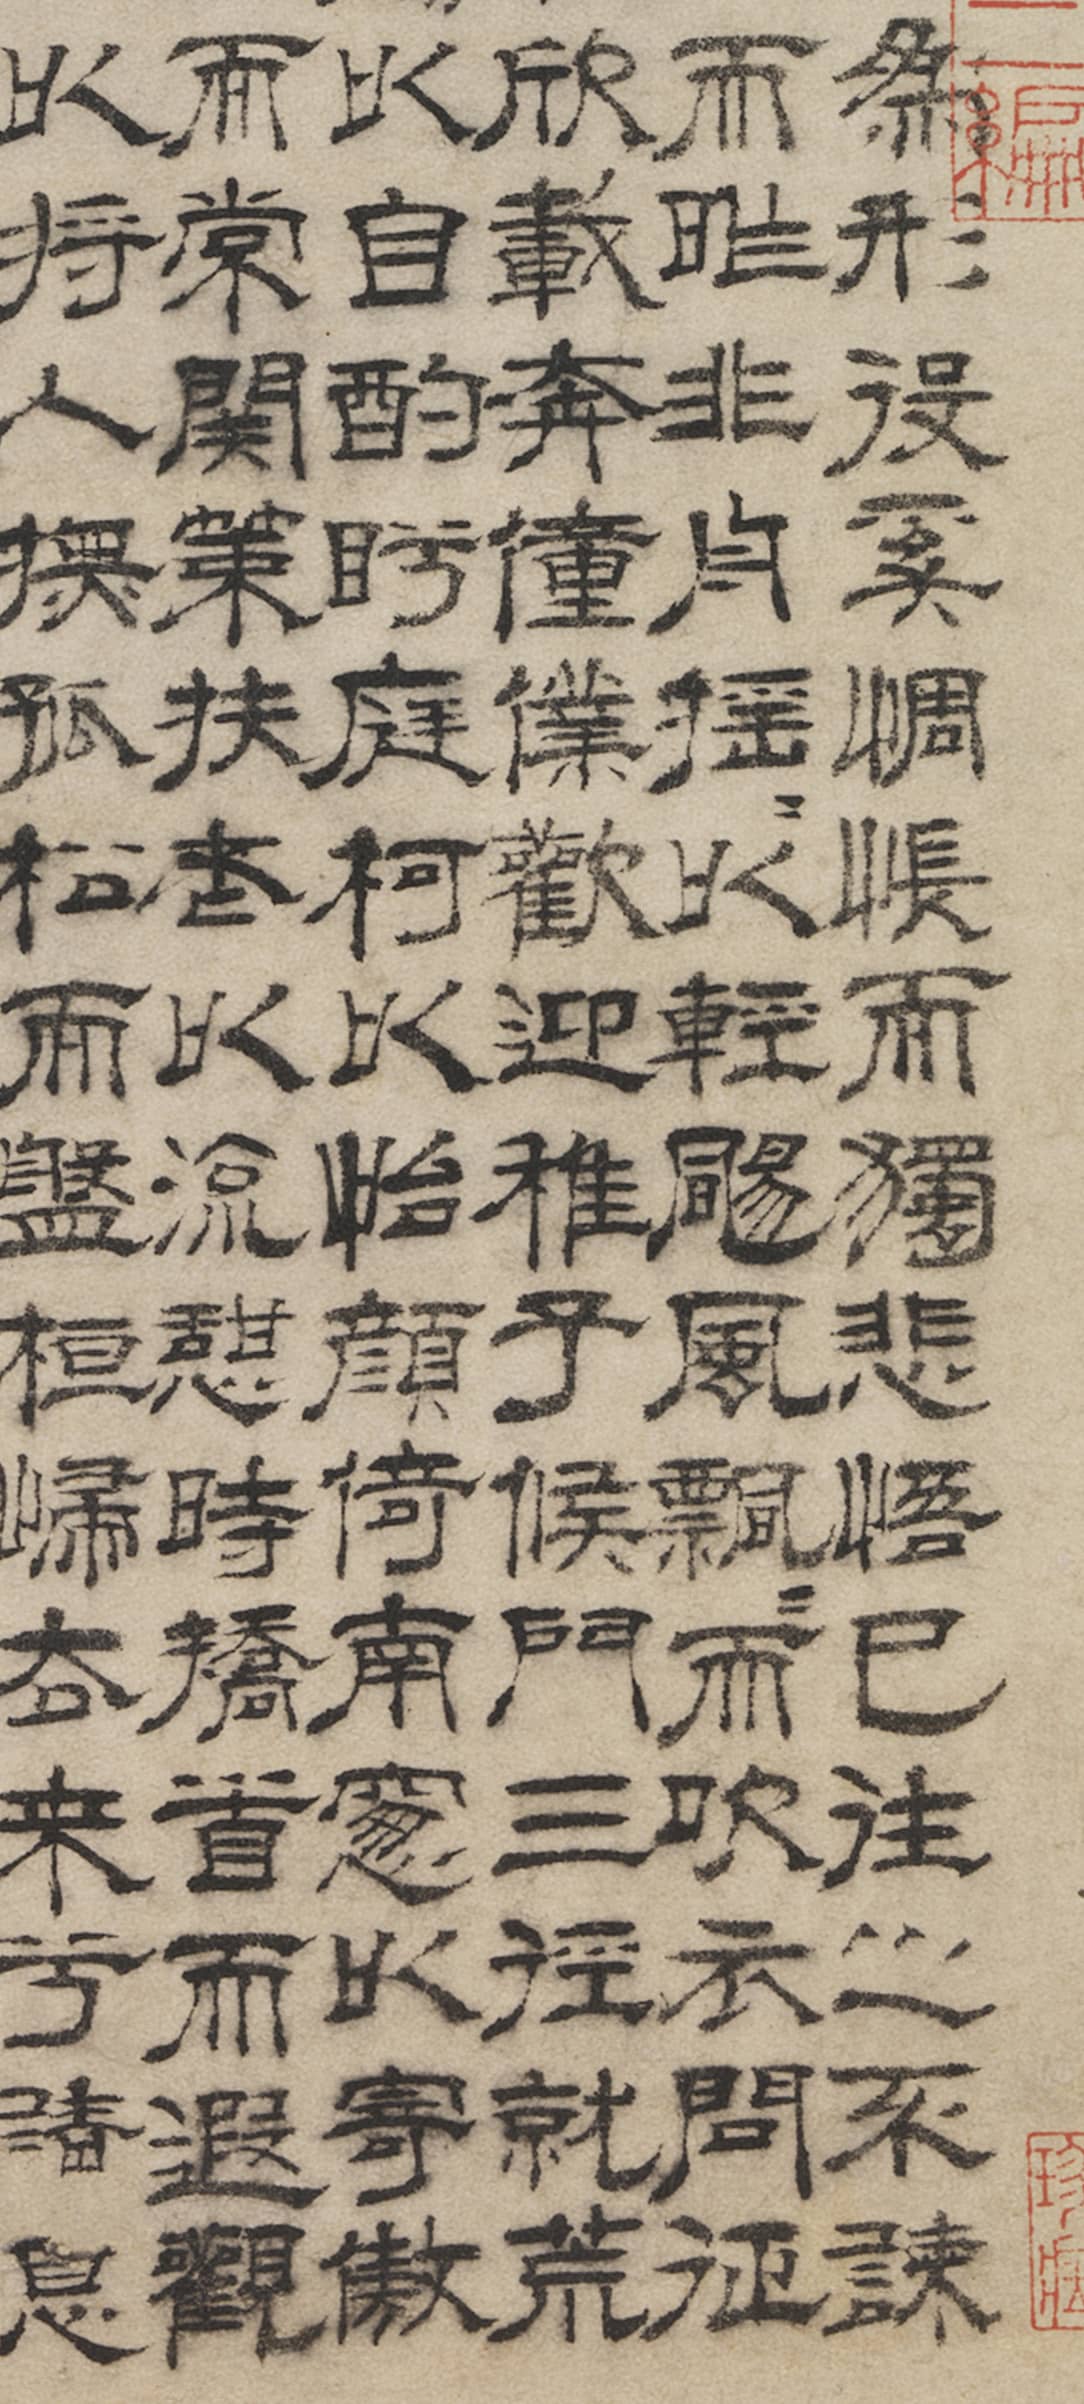 為形役奚惆悵而獨悲悟已往之不諫
而昨非舟搖〻以輕颺風飄〻而吹衣問征
欣載奔僮僕歡迎稚子候門三徑就荒
以自酌眄庭柯以怡顏倚南窻以寄傲
而常関策扶老以流憇時撟首而遐觀
以將入撫孤松而盤桓歸去来兮請息